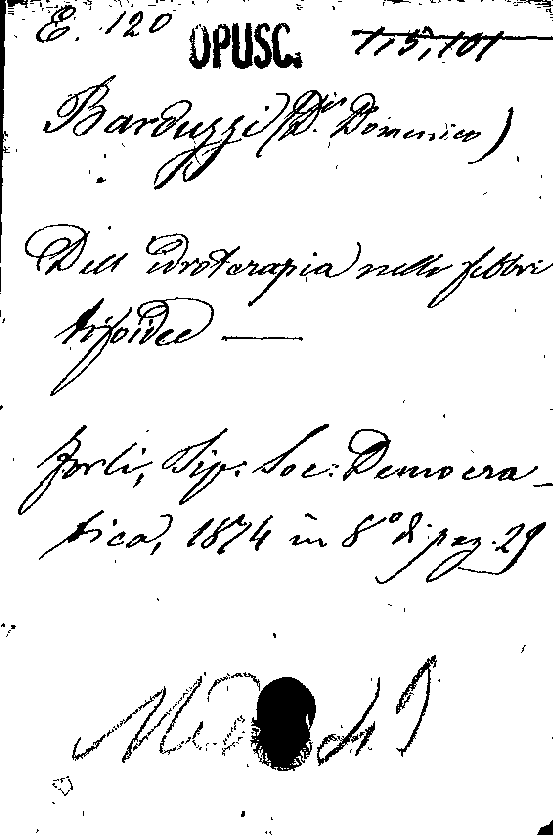 E. 120 OPUSC. 115,101
Barduzzi (Dr. Domenico)
Dell'idroterapia nelle febbri
tifoidee —
Forlì, Tip: Soc: Democra-
tica, 1874 in 8° di pag. 29
Med 49